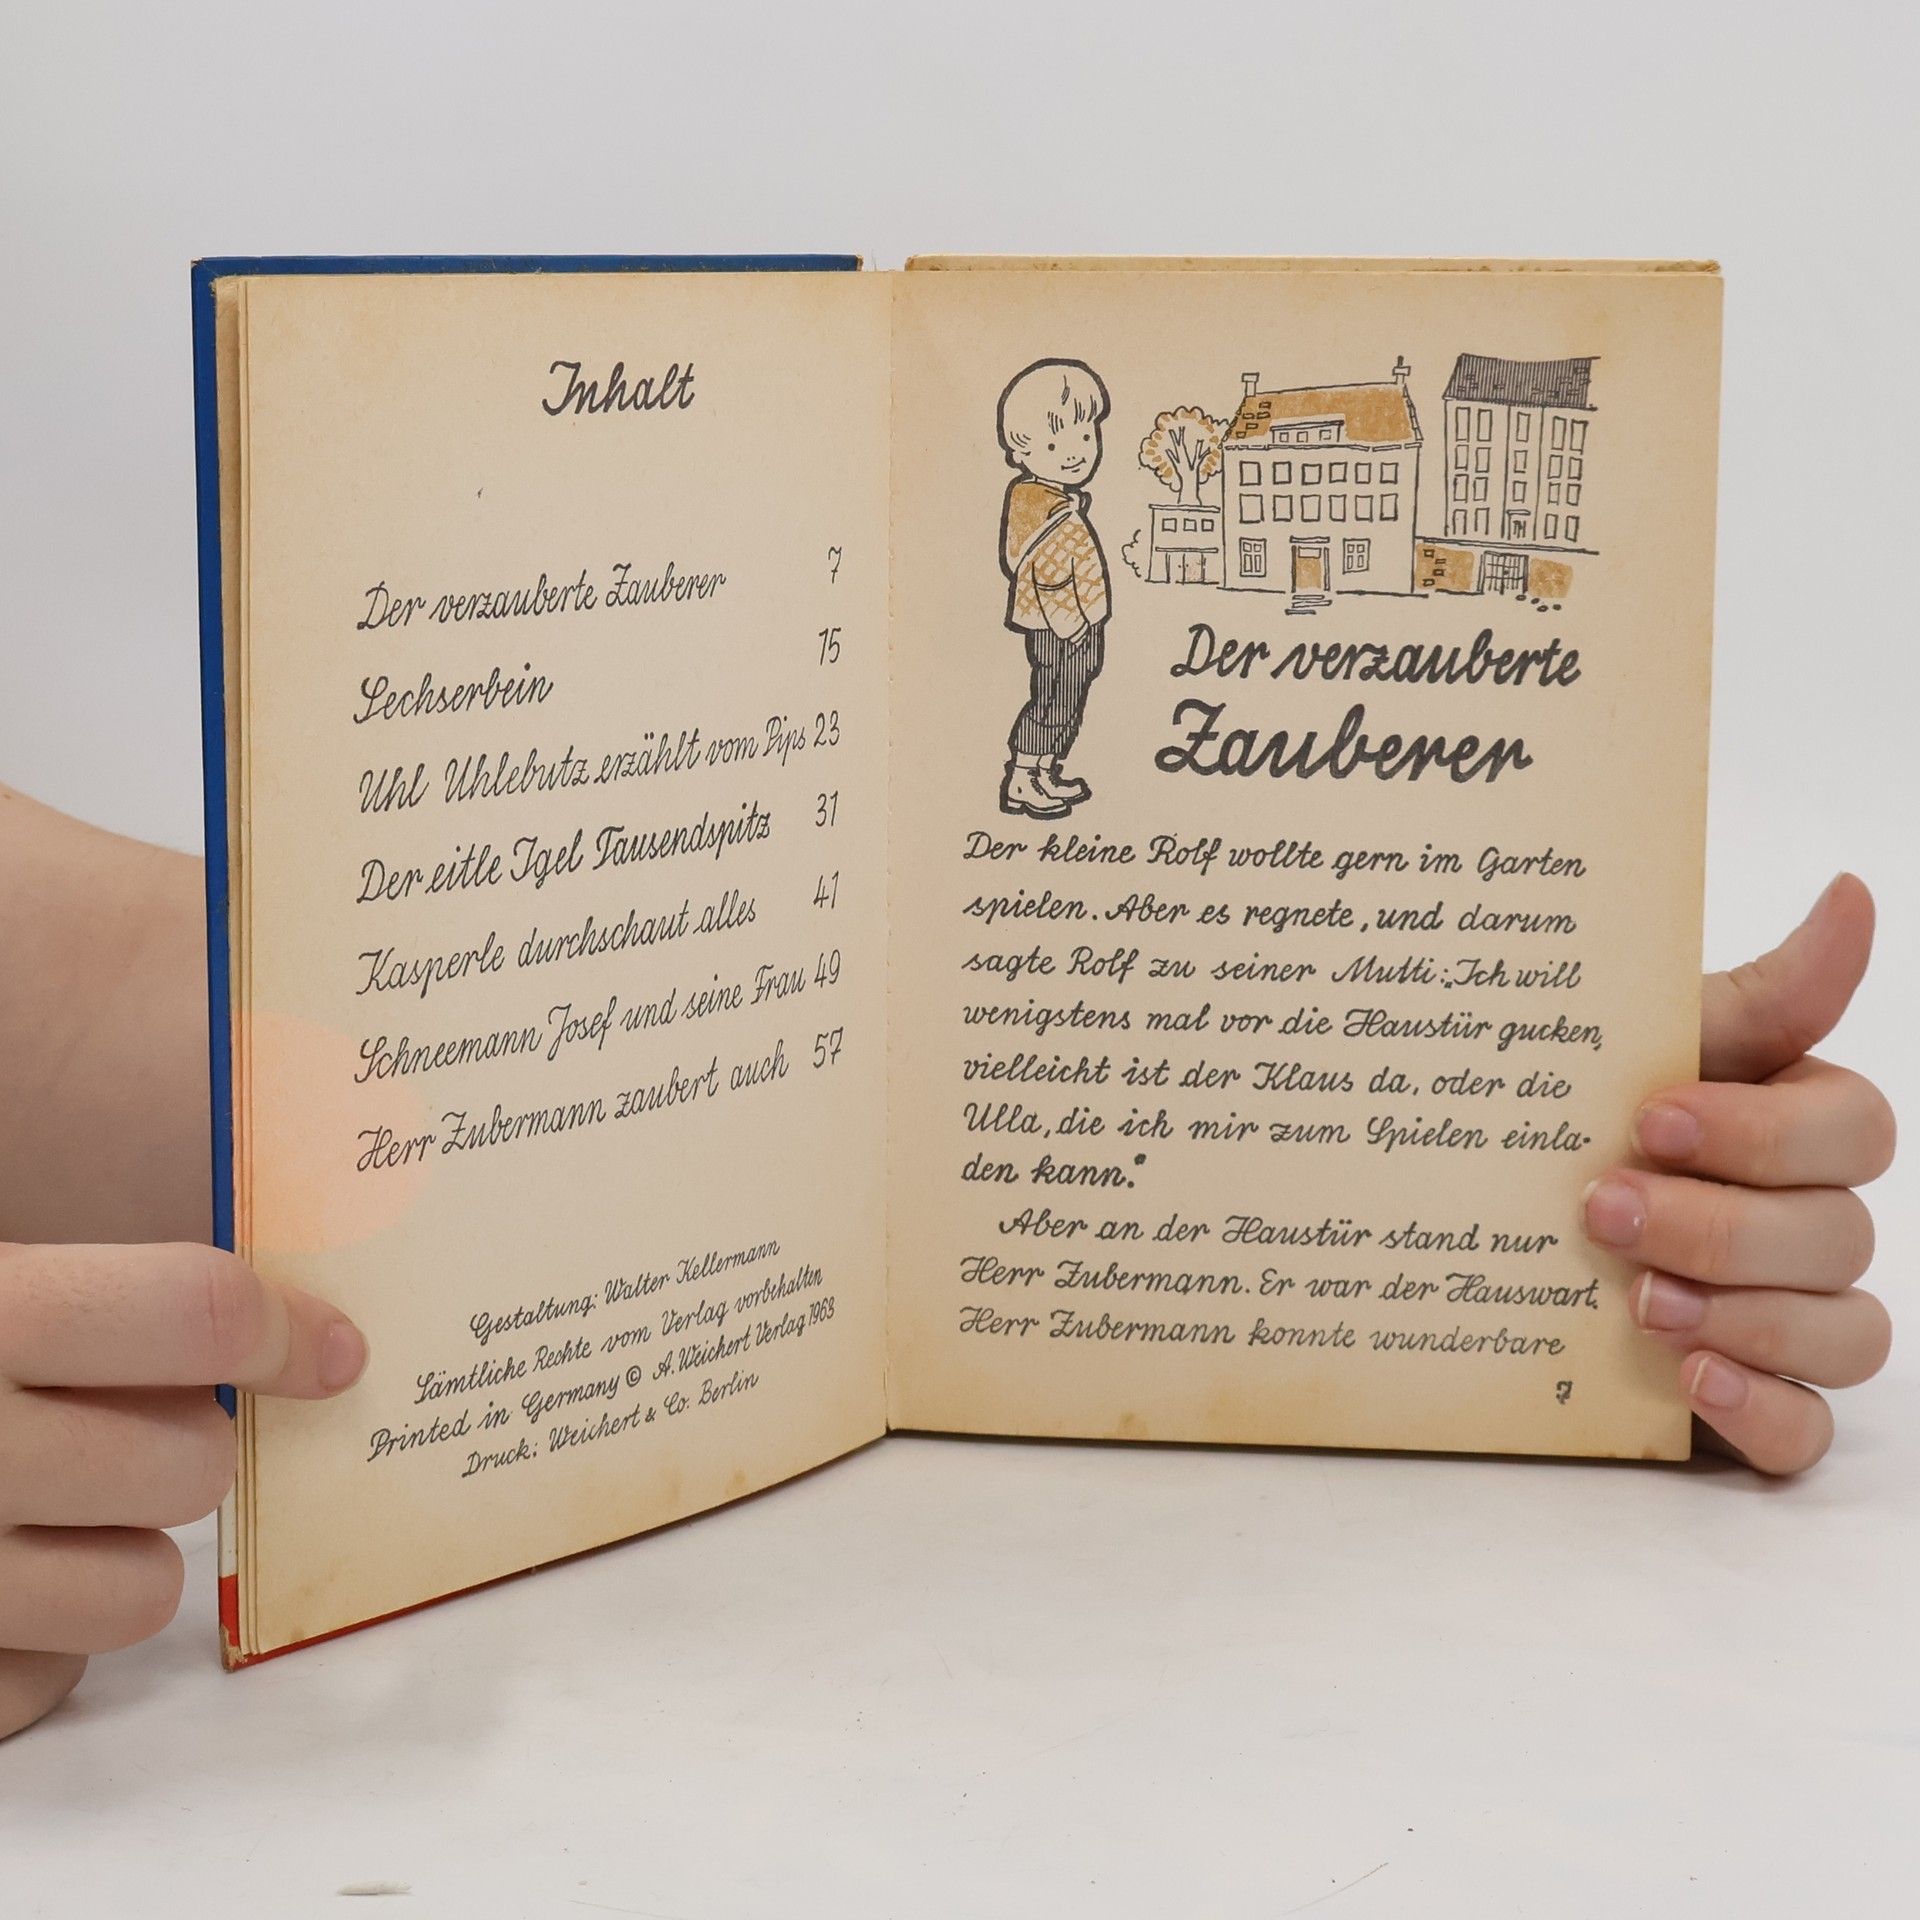 Inhalt
Der verzauberte Zauberer 7
Sechserbein 15
Uhl Uhlebutz erzählt vom Pips 23
Der eitle Igel Tausendspitz 31
Kasperle durchschaut alles 41
Schneemann Josef und seine Frau 49
Herr Zubermann zaubert auch 57
Gestaltung: Walter Kellermann
Sämtliche Rechte vom Verlag vorbehalten
Printed in Germany © A. Weichert Verlag 1963
Druck: Weichert & Co. Berlin
Der verzauberte
Zauberer
Der kleine Rolf wollte gern im Garten
spielen. Aber es regnete, und darum
sagte Rolf zu seiner Mutti: „Ich will
wenigstens mal vor die Haustür gucken,
vielleicht ist der Klaus da, oder die
Ulla, die ich mir zum Spielen einla-
den kann."
Aber an der Haustür stand nur
Herr Zubermann. Er war der Hauswart.
Herr Zubermann konnte wunderbare
7